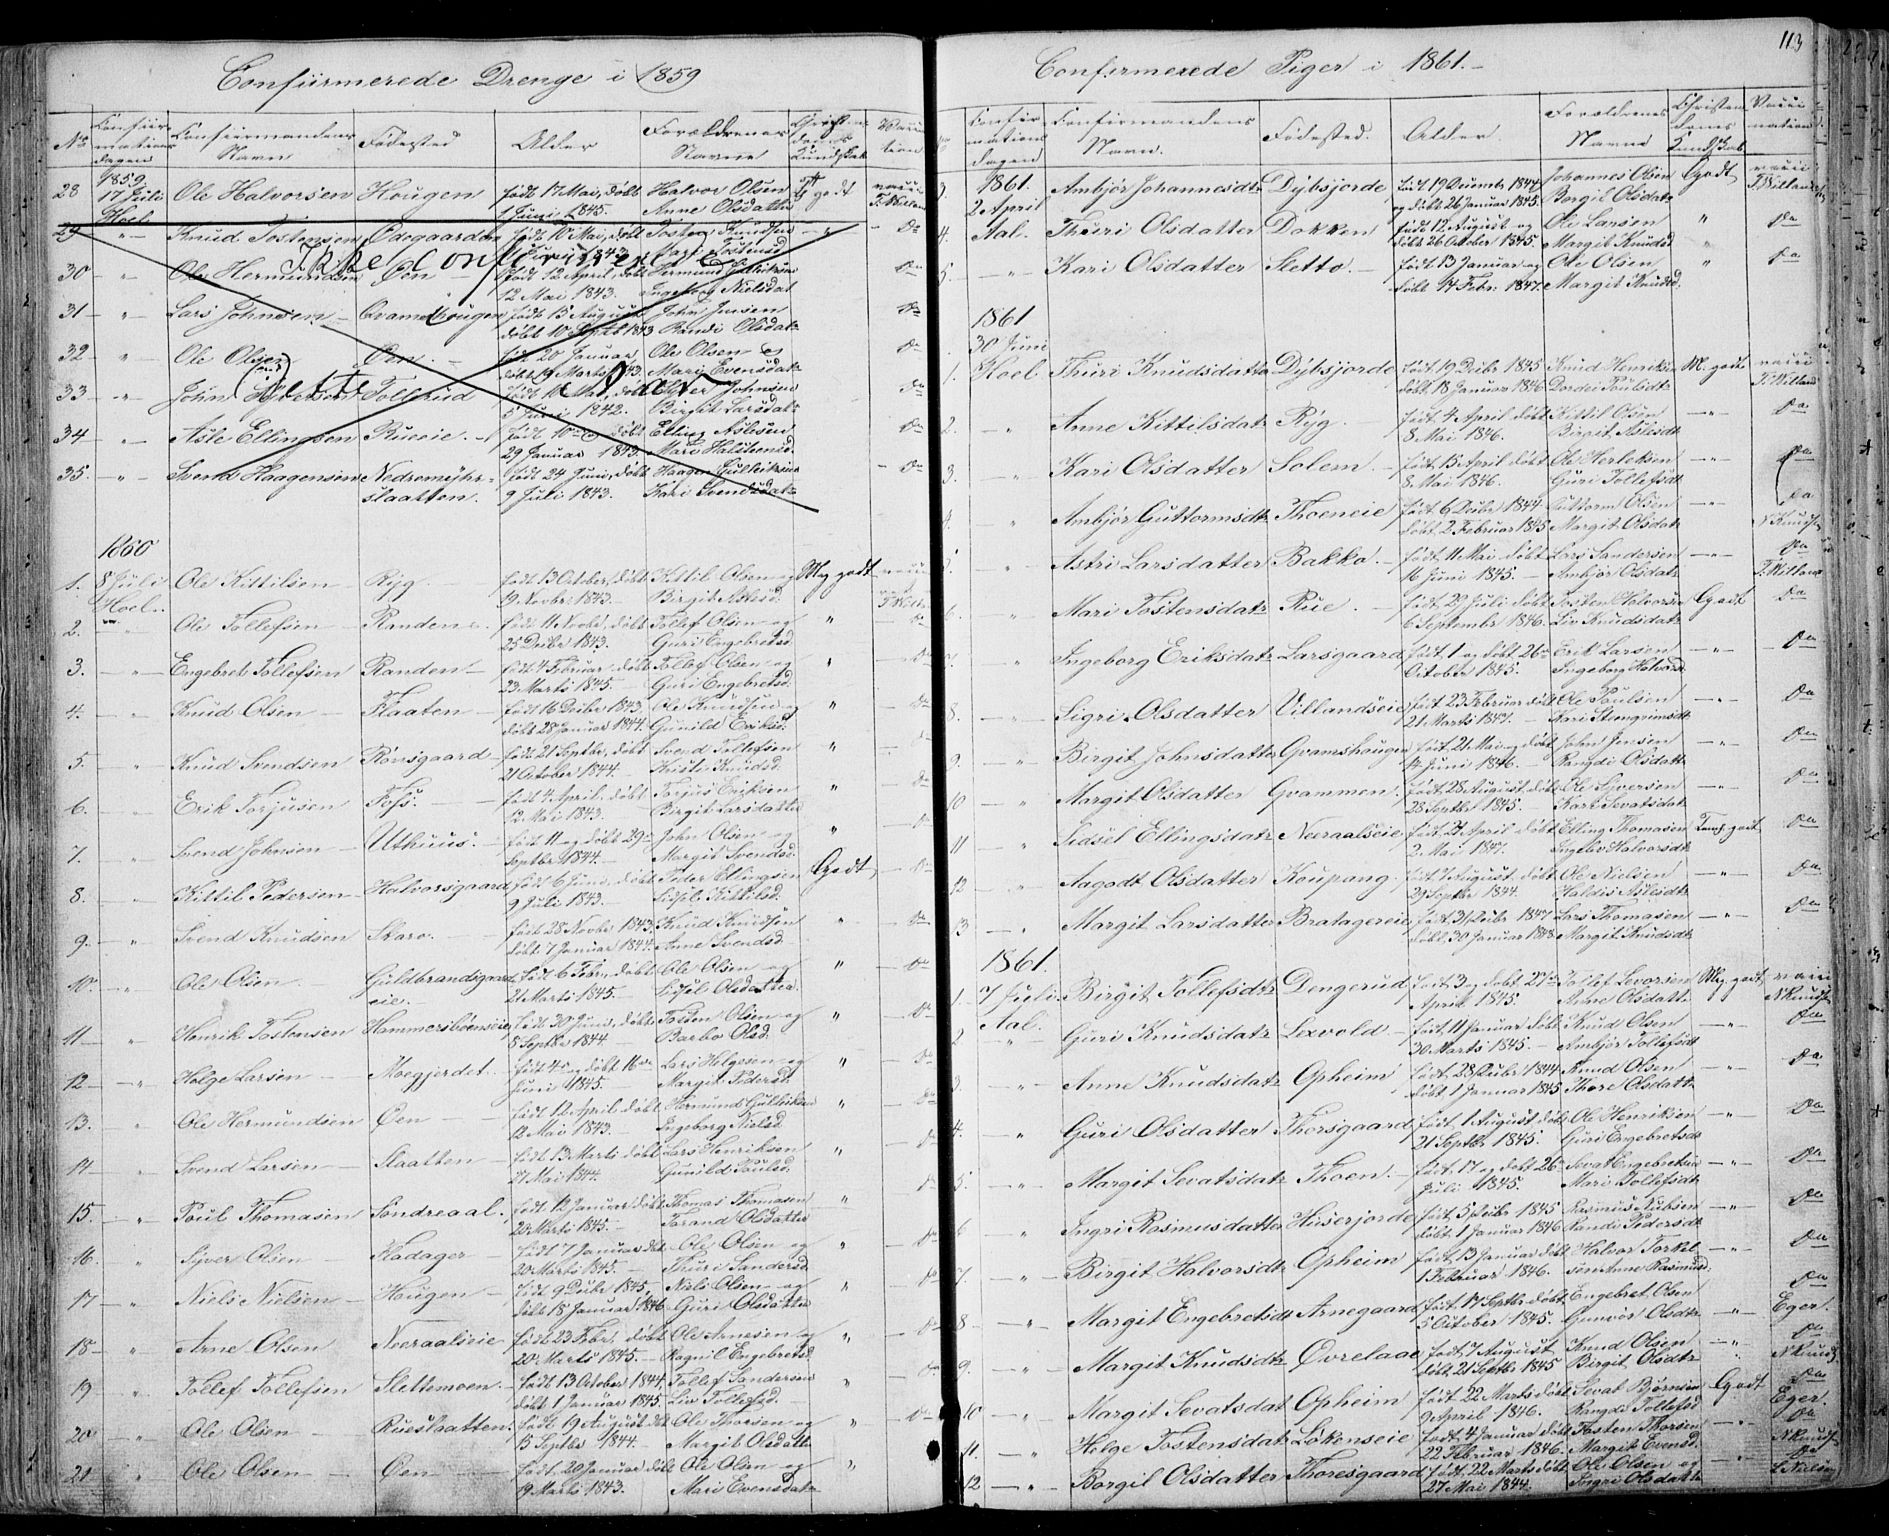 113
Confirmerede Drenge i 1859
No
Confirmations dagen
Confirmandens Navn
Fødested
Alder
Forældrenes Navne
Christendoms Kundskab
Vaccination
28 1859 17 Juli Hoel Ole Halvorsen Hougen født 17 Mai, døbt Halvor Olsen godt
1 Juni 1845. Anne Olsdatter
29 -"- Knud Tostensen Ødegaarden født 10 Mai, døbt Tosten Knudsen Do
Ikke confirmeret
30 -"- Ole Hermundsen Øen født 12 April døbt Hermund Gulleiksen Do
12 Mai 1843. Ingeborg Nielsdat
31 -"- Lars Johnsen Qvamshougen født 15 August John Jensen Do
døbt 10 Septb 1843 Randi Olsdat
32 -"- Ole Olsen Øen. født 20 Januar Ole Olsen og Do
døbt 19 Marts 1843. Mari Evensdat
33 -"- John Tollerud født 10 Mai, døbt Johnsen Do
5 Juni 1842. Birgit Larsdat
34 -"- Asle Ellingsen Rueeie. født døbt Elling Aslesen Do
29 Januar 1843. Mari Halstensd
35. -"- Svend Haagensen Nedremyhrslaatten. født 24 Juni, døbt Haagen Gulleiksen Do
9 Juli 1843. Kari Svendsdat
1860
1. 8 Juli Hoel. Ole Kittilsen Ryg født 13 October, døbt Kittil Olsen og Mg godt
19 Novbr 1843. Birgit Aslesd.
2. " Ole Tollefsen Randen født 11 Novbr, døbt Tollef Olsen og " Do
25 Decbr 1843. Guri Engebretsd
3. -"- Engebret Tollefsen Randen født 4 Februar døbt Tollef Olsen og " Do
23 Marts 1845. Guri Engebretsd.
4. " Knud Olsen Flaaten født 16 Decbr 1843 Ole Knudsen og " Do
døbt 28 Januar 1844. Gunild Eriksd.
5. " Knud Svendsen Rønsgaard født 21 Septbr, døbt Svend Tollefsen "
21 October 1844. Kristi Knudsd.
6. " Erik Torjusen Foss. født 4 April døbt Torjus Eriksen " Do
12 Mai 1843. Birgit Larsdatter
7. " Svend Johnsen Uthuus. født 11 og døbt 29 John Olsen og "
Septbr 1844. Margit Svendsd
8. " Kittil Pedersen Halvorsgaard født 6 Juni, døbt Peder Ellingsen Godt Do
9 Juli 1843. Sidsel Kittilsd.
9. " Svend Knudsen Skaro. født 28 Novbr 1843, Knud Knudsen " Do
døbt 7 Januar 1844. Anne Svendsd.
10. " Ole Olsen Guldbrandsgaardeie. født 6 Febr, døbt Ole Olsen og " Do
21 Marts 1845. Sidsel Olsdatter
11 " Henrik Tostensen Hammersbøenseie født 30 Juni, døbt Tosten Olsen og " Do
8 Septbr 1844 Barbo Olsd
12 " Holge Larsen Moegjerdet. født 4 og døbt 16 Lars Holgesen og " Do
Juni 1845. Margit Pedersd.
13. " Ole Hermundsen Øen født 12 April døbt Hermund Gulleiksen " Do
12 Mai 1843. Ingeborg Nielsd
14 " Svend Larsen Slaatten født 13 Marts døbt Lars Henriksen " Do
21 Mai 1844. Gunild Poulsd.
15. " Poul Thomasen Sondreaal. født 12 Januar, døbt Thomas Thomasen " Do
20 Marts 1845. Tarand Olsdatter
16. " Syver Olsen Kladager født 7 Januar døbt Ole Olsen og " Do
20 Marts 1845. Thuri Sandersd
17 " Niels Nielsen Hougen født 9 Decbr 1845, Niels Olsen og " Do
døbt 18 Januar 1846 Guri Olsdatter
18 " Arne Olsen Neeraalseie født 23 Febr. døbt Ole Arnesen og " Do
20 Marts 1845. Ragnil Engebretsd
19 " Tollef Tollefsen Slettemoen. født 13 October 1844 Tollef Sandersen " Do
døbt 1 Januar 1845. Liv Tollefsd.
20 " Ole Olsen Rueslaatten. født 19 August døbt Ole Thorsen og " Do
15 Septbr 1844. Margit Olsdatter
21 " Ole Olsen Øen født 20 Januar døbt Ole Olsen og "
19 Marts 1843. Mari Evensdat
Confirmerede Piger i 1861.
Confirmations dagen
Confirmandens Navn.
Fødested.
Alder
Forældrenes Navne
Christendoms Kundskab
Vaccination
3. 1861. 2 April Aal. Ambjør Johannesdtr Dybsjorde født 19 Decembr 1844 Johannes Olsen Godt
og døbt 26 Januar 1845. Borgil Olsdatr
4. Thuri Olsdatter Dokken født 12 August og Ole Larsen " Do
døbt 26 October 1845. Margit Knudsd
5. -"- Kari Olsdatter Sletto. født 13 Januar og Ole Olsen " Do
døbt 14 Febr. 1847. Margit Knudsd.
1861
30 Juni
1. Hoel Thuri Knudsdatter Dybsjorde født 19 Decbr 1845 Knud Henriksen M. godt
døbt 18 Januar 1846 Dordei Poulsdtr
2. " Anne Kittelsdatr Ryg. født 4 April døbt Kittil Olsen -"- Do
8 Mai 1846. Birgit Aslesdtr
3. " Kari Olsdatter Solem født 15 April døbt Ole Herleksen -"- Do
8 Mai 1846. Guri Tollefsdtr
4. " Ambjør Guttormsdtr Thoeneie født 6 Decbr 1844 Guttorm Olsen -"- Do
døbt 2 Februar 1845 Margit Olsdat N Knudsen
5. " Astri Larsdatter Bakko. født 11 Mai døbt Lars Sandersen -"- Do
16 Juni 1845. Ambjør Olsdatr
6. " Mari Tostensdatr Rue. født 29 Juli døbt Tosten Halvorsen Godt Do
6 Septembr 1846. Liv Knudsdatr
7. " Ingeborg Eriksdatr Larsgaard født 1 og døbt 26 Erik Larsen -"- Do
October 1845. Ingeborg Halvorsd
8. -"- Sigri Olsdatter Villandseie født 23 Februar døbt Ole Poulsen Do
21 Marts 1847. Kari Steingrimsdt
9. " Birgit Johnsdatter Qvamshougen født 21 Mai og døbt John Jensen -"- Do
14 Juni 1846. Rangdi Olsdatt
10 -"- Margit Olsdatter Qvammen. født 28 August, døbt Ole Syversen -"- Do
28 Septbr 1845. Kari Sevatsdat
11 " Sidsel Ellingsdatr Neeraalseie født 21 April døbt Elling Thomasen Temg. godt Do
2 Mai 1847. Ingebor Halvorsdt
12 " Aagodt Olsdatter Koupang. født 7 August døbt Ole Nielsen -"- Do
29 Septbr 1844. Haldis Aslesdt
13 -"- Margit Larsdatter Bratagereie født 31 Decbr 1847 Lars Thomasen -"- Do
døbt 30 Januar 1848. Margit Knudsdt
1861.
1. 7 Juli Aal. Birgit Tollefsdtr Dengerud født 3 og døbt 27 Tollef Levorsen Mg. godt
April 1845. Anne Olsdatt N Knudsen
2 " Guri Knudsdatter Lexvold født 11 Januar døbt Knud Olsen -"- Do
30 Marts 1845. Ambjør Tollefsdt
3. " Anne Knudsdatr Opheim født 28 Decbr 1844 Knud Olsen -"- Do
døbt 1 Januar 1845 Thore Olsdatt
4. " Guri Olsdatter Thorsgaard født 1 August døbt Ole Henriksen -"- Do
21 Septbr 1845. Guri Engebretsd
5. -"- Margit Sevatsdatr Thoen. født 17 og døbt 26 Sevat Engebretsen -"- Do
Juli 1845. Mari Tollefsdt
6 -"- Ingri Rasmusdatter Huserjorde født 5 Decbr 1845 Rasmus -"- Do
døbt 1 Januar 1846 Randi Pedersdt
7. -"- Birgit Halvorsdtr Opheim født 13 Januar døbt Halvor Torkelsen -"- Do
1 Februar 1846. Anne Rasmusd.
8 -"- Margit Engebretsdt Arnegaard født 17 Septbr døbt Engebret Olsen -"- Do
5 October 1845. Gunvor Olsdtr Eger.
9. -"- Margit Knudsdtr Øvrelaae født 7 August Knud Olsen -"- Do
døbt 21 Septbr 1845 Birgit Olsdtr N Knuds
10 -"- Margit Sevatsdatr Opheim født 22 Marts døbt Sevat Bjørnsen Godt Do
9 April 1846. Rangdi Tollefsd Eger.
11. -"- Helge Tostensdatr Løkenseie født 4 Januar døbt Tosten Thorsen -"- Do
22 Februar 1846. Margit Evensd. N Knuds
12 -"- Borgil Olsdatter Thoresgaard født 22 Marts døbt Ole Olsen og -"- Do
27 Mai 1844. Ingri Olsdatter L Nielsen